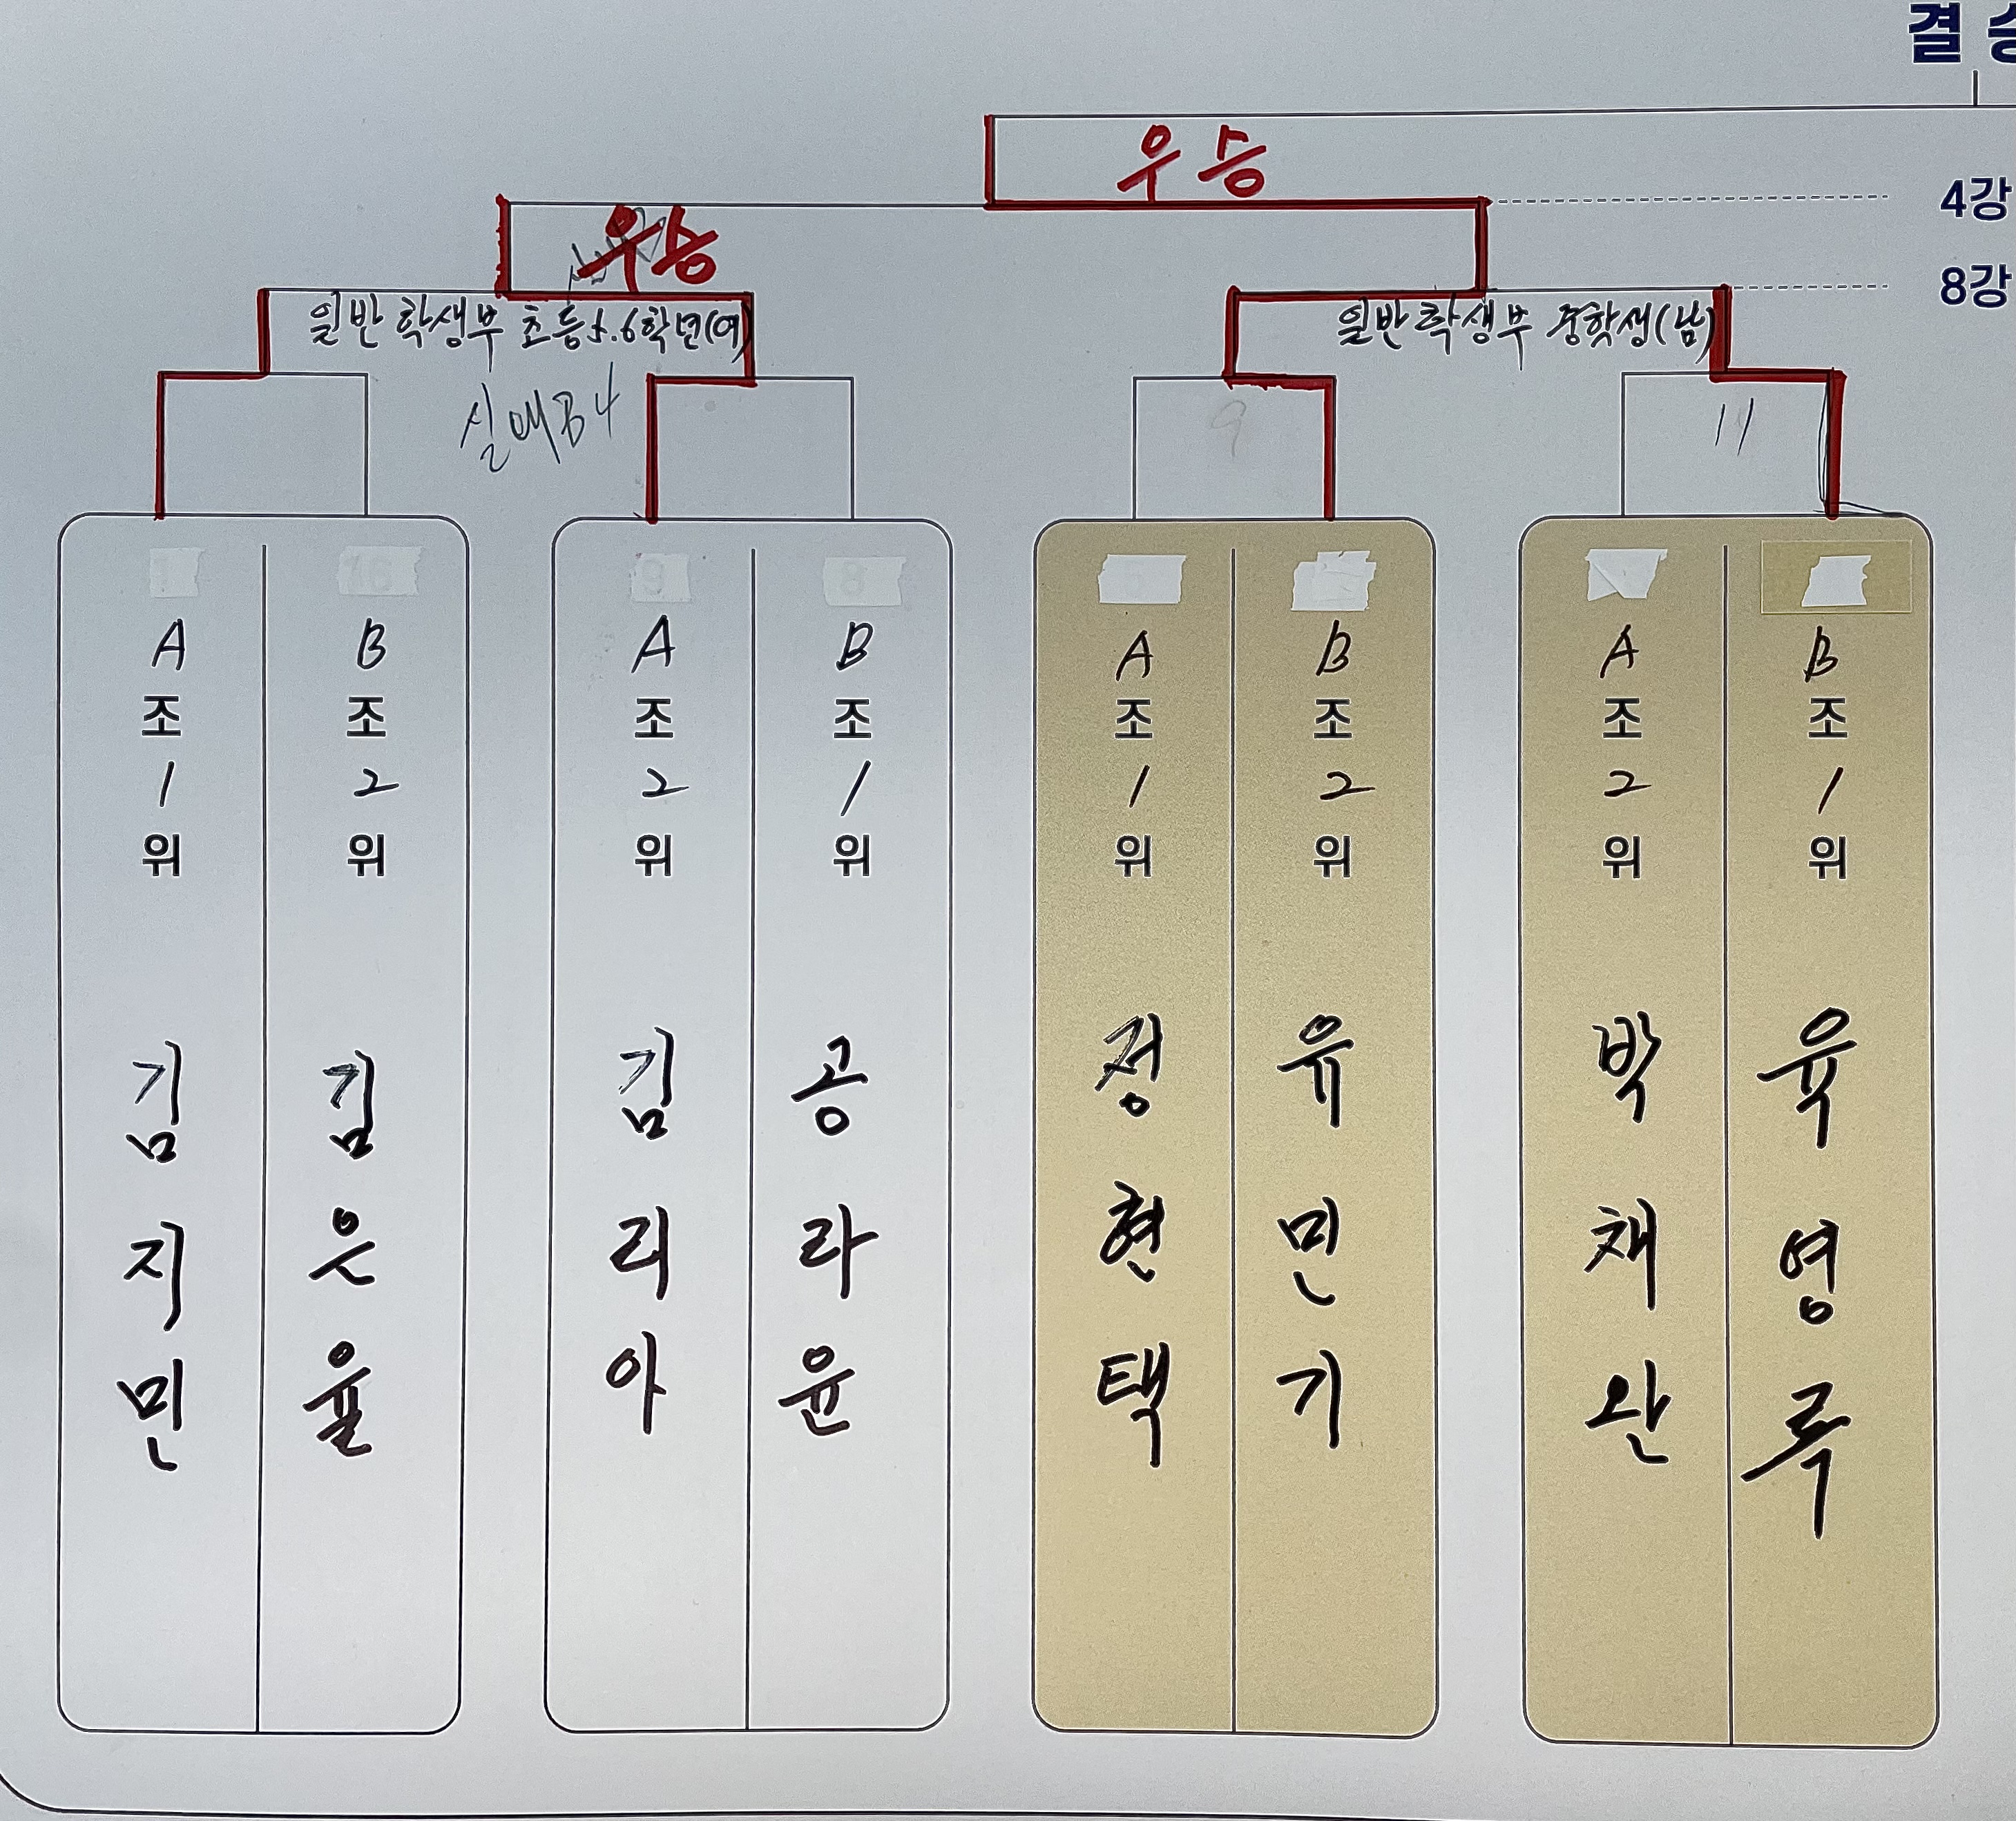 결승
우승
4강
우승
8강
일반 학생부 초등5.6학년(여)
일반 학생부 중학생(남)
실매B4
9
11
16
9
8
A조1위 김지민
B조2위 김은율
A조2위 김리아
B조1위 공라윤
A조1위 정현택
B조2위 유민기
A조2위 박채완
B조1위 육영루